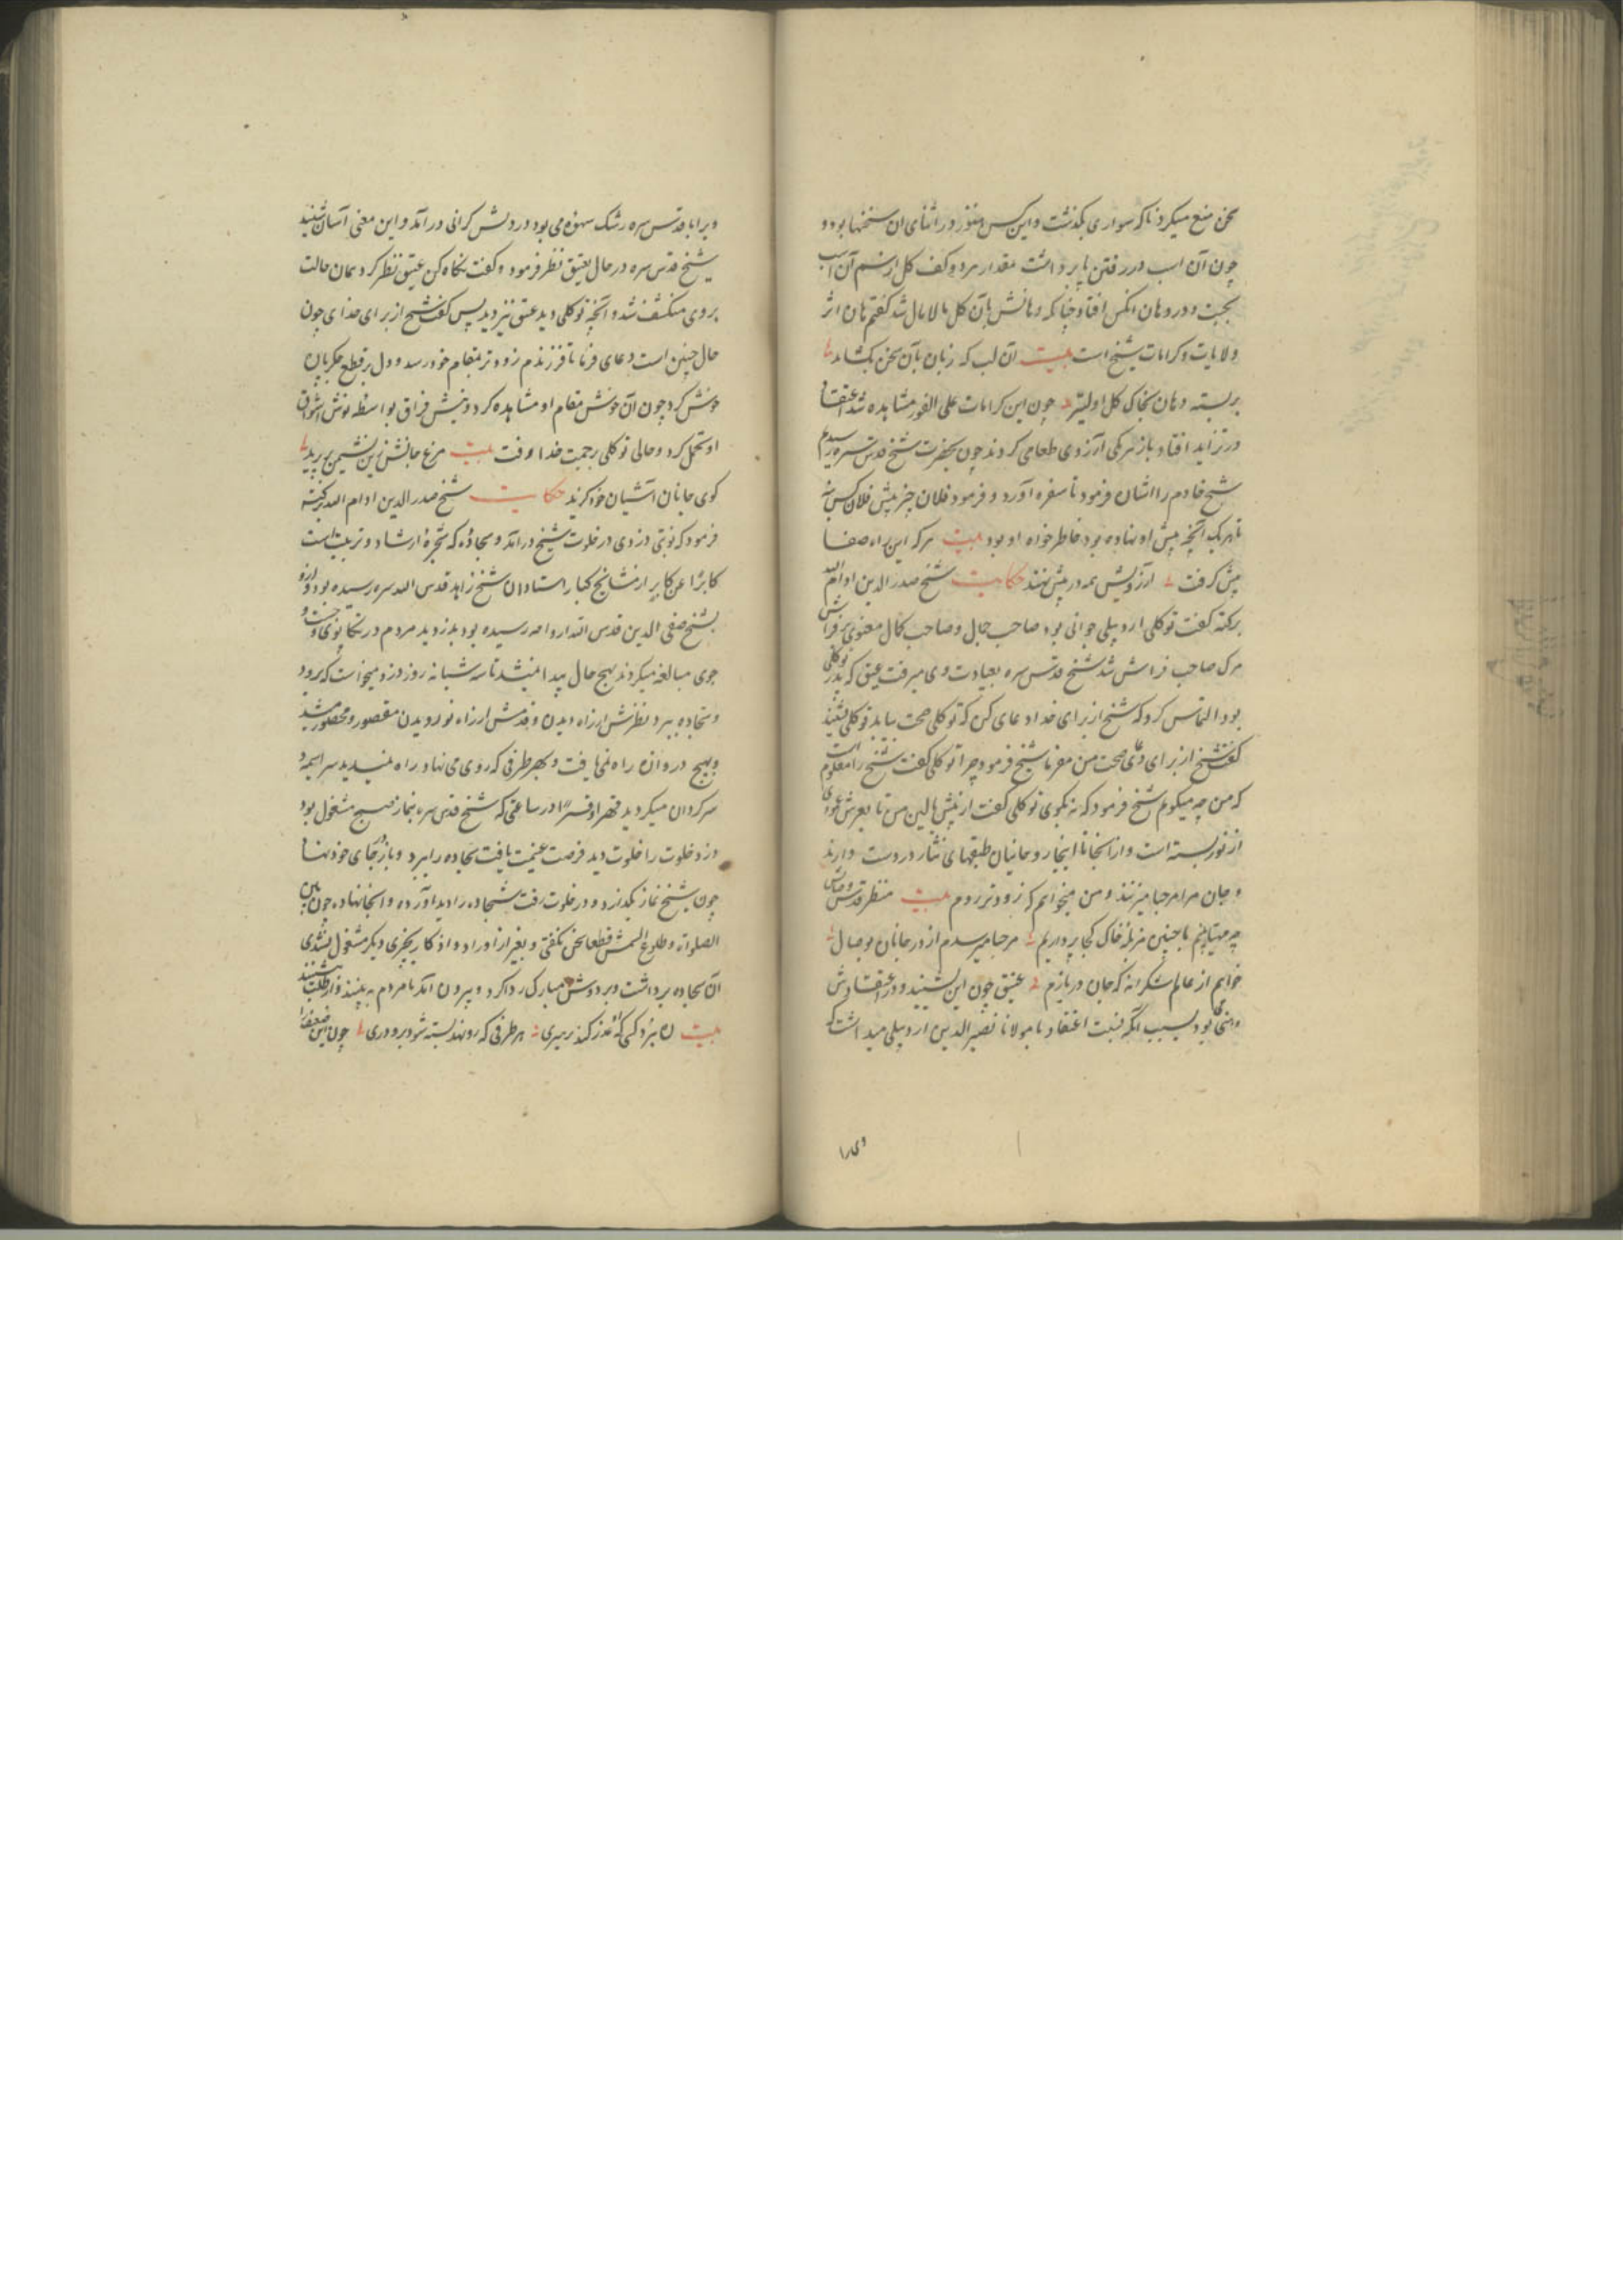 سخن منع میکرد ناکه سواری بکذشت واین کس هنوز در اثنای ان سخنها بود و
چون آن اسب در رفتن پا برداشت مقدار مرد و کف کل از سم آن اسب
بجست و در دهان انکس افتاد چنانکه دهانش بآن کل مالامال شد کفتم هان اثر
ولایات وکرامات شیخ است بیت آن لب که زبان بآن سخن بکشاید
بربسته دهان بخاک کل اولیتر چون این کرامات علی الفور مشاهده شد اعتقاد
در تزاید افتاد باز هر یکی آرزوی طعامی کردند چون بحضرت شیخ قدس سره رسیدیم
شیخ خادم را اشان فرمود تا سفره آورد و فرمود فلان چیز پیش فلان کس نه
تا هر یک آنچه پیش او نهاده بود خاطر خواه او بود بیت هرکه این راه صفا
پیش کرفت آرزویش همه در پیش نهند حکایت شیخ صدر الدین ادام الله
برکته کفت توکلی اردبیلی جوانی بود صاحب جمال وصاحب کمال معنوی بر فراش
مرک صاحب فراش شد شیخ قدس سره بعیادت وی میرفت عیق که پدر توکلی
بود التماس کرد که شیخ از برای خدا دعای کن که توکلی صحت بیابد توکلی بشنید
کفت شیخ از برای دعای صحت من مفرما شیخ فرمود چرا توکلی کفت شیخ را معلوم است
که من چه میکویم شیخ فرمود که نه بکوی توکلی کفت از پیش بالین من تا بعرش عمودی
از نور بسته است و از انجا تا اینجا روحانیان طبقهای نثار در دست دارند
و جان مرا مرحبا میزنند و من میخواهم که زودتر روم بیت منتظر قدس وصالش
چه مهیاییم با چنین مزبلهٔ خاک کجا پردازیم مرحبا میرسدم از در جانان بوصال
خواهم از عالم شکرانه که جان دربازم عیق چون این بشنید و در اعتقادش
وهنی بود بسبب آنکه نسبت اعتقاد با مولانا نصیر الدین اردبیلی میداشت که
وی را
ویرا با قدس سره رشک سهوه می بود در دلش کرانی درآمد و این معنی آسان شنید
شیخ قدس سره در حال بعیق نظر فرمود و کفت نکاه کن عیق نظر کرد همان حالت
بروی منکشف شد و آنچه توکلی دید عیق نیز دید پس کفت شیخ از برای خدای چون
حال چنین است دعای فرما تا فرزندم زودتر بمقام خود رسد و دل بر قطع جکر پاره
خوش کرد چون آن خوش مقام او مشاهده کرد و نیش فراق بواسطه نوش اشواق
او تحمل کرد و حالی توکلی رحمت خدا رفت بیت مرغ جانش زین نشیمن بر پرید
کوی جانان آشیان خود کزید حکایت شیخ صدر الدین ادام الله برکته
فرمود که نوبتی دزدی در خلوت شیخ درآمد و سجادهٔ که شجرهٔ ارشاد و تربیت است
کابرًا عن کابر از مشایخ کبار استادان شیخ زاهد قدس الله سره رسیده بود و ازو
بشیخ صفی الدین قدس الله ارواحهم رسیده بود بدزدید مردم در تکاپوی و جست و
جوی مبالغه میکردند بهیج حال پیدا نمیشد تا سه شبانه روز دزد میخواست که برود
و سجاده ببرد نظرش از راه دیدن و قدمش از راه نوردیدن مقصور و محصور میشد
و بهیج دروازه راه نمی یافت و بهر طرفی که روی می نهاد راه نمیدید سراسیمه
سرکردان میکردید قهرا و قسرا در ساعتی که شیخ قدس سره بنماز صبح مشغول بود
دزد خلوت را خلوت دید فرصت غنیمت یافت سجاده را ببرد و باز بجای خود نهاد
چون شیخ نماز بکذارد و در خلوت رفت سجاده را دید آورده و آنجا نهاده چون بین
الصلواة و طلوع الشمس قطعا سخن نکفتی و بغیر از اوراد و اذکار بچیزی دیکر مشغول نشدی
آن سجاده برداشت و بر دوش مبارک ردا کرد و بیرون آمد تا مردم به بینند و از طلب بنشینند
بیت ره نبرد کسی که او عذر کند رهبری هر طرفی که رو نهد بسته شود برو دری چون این ضعفا